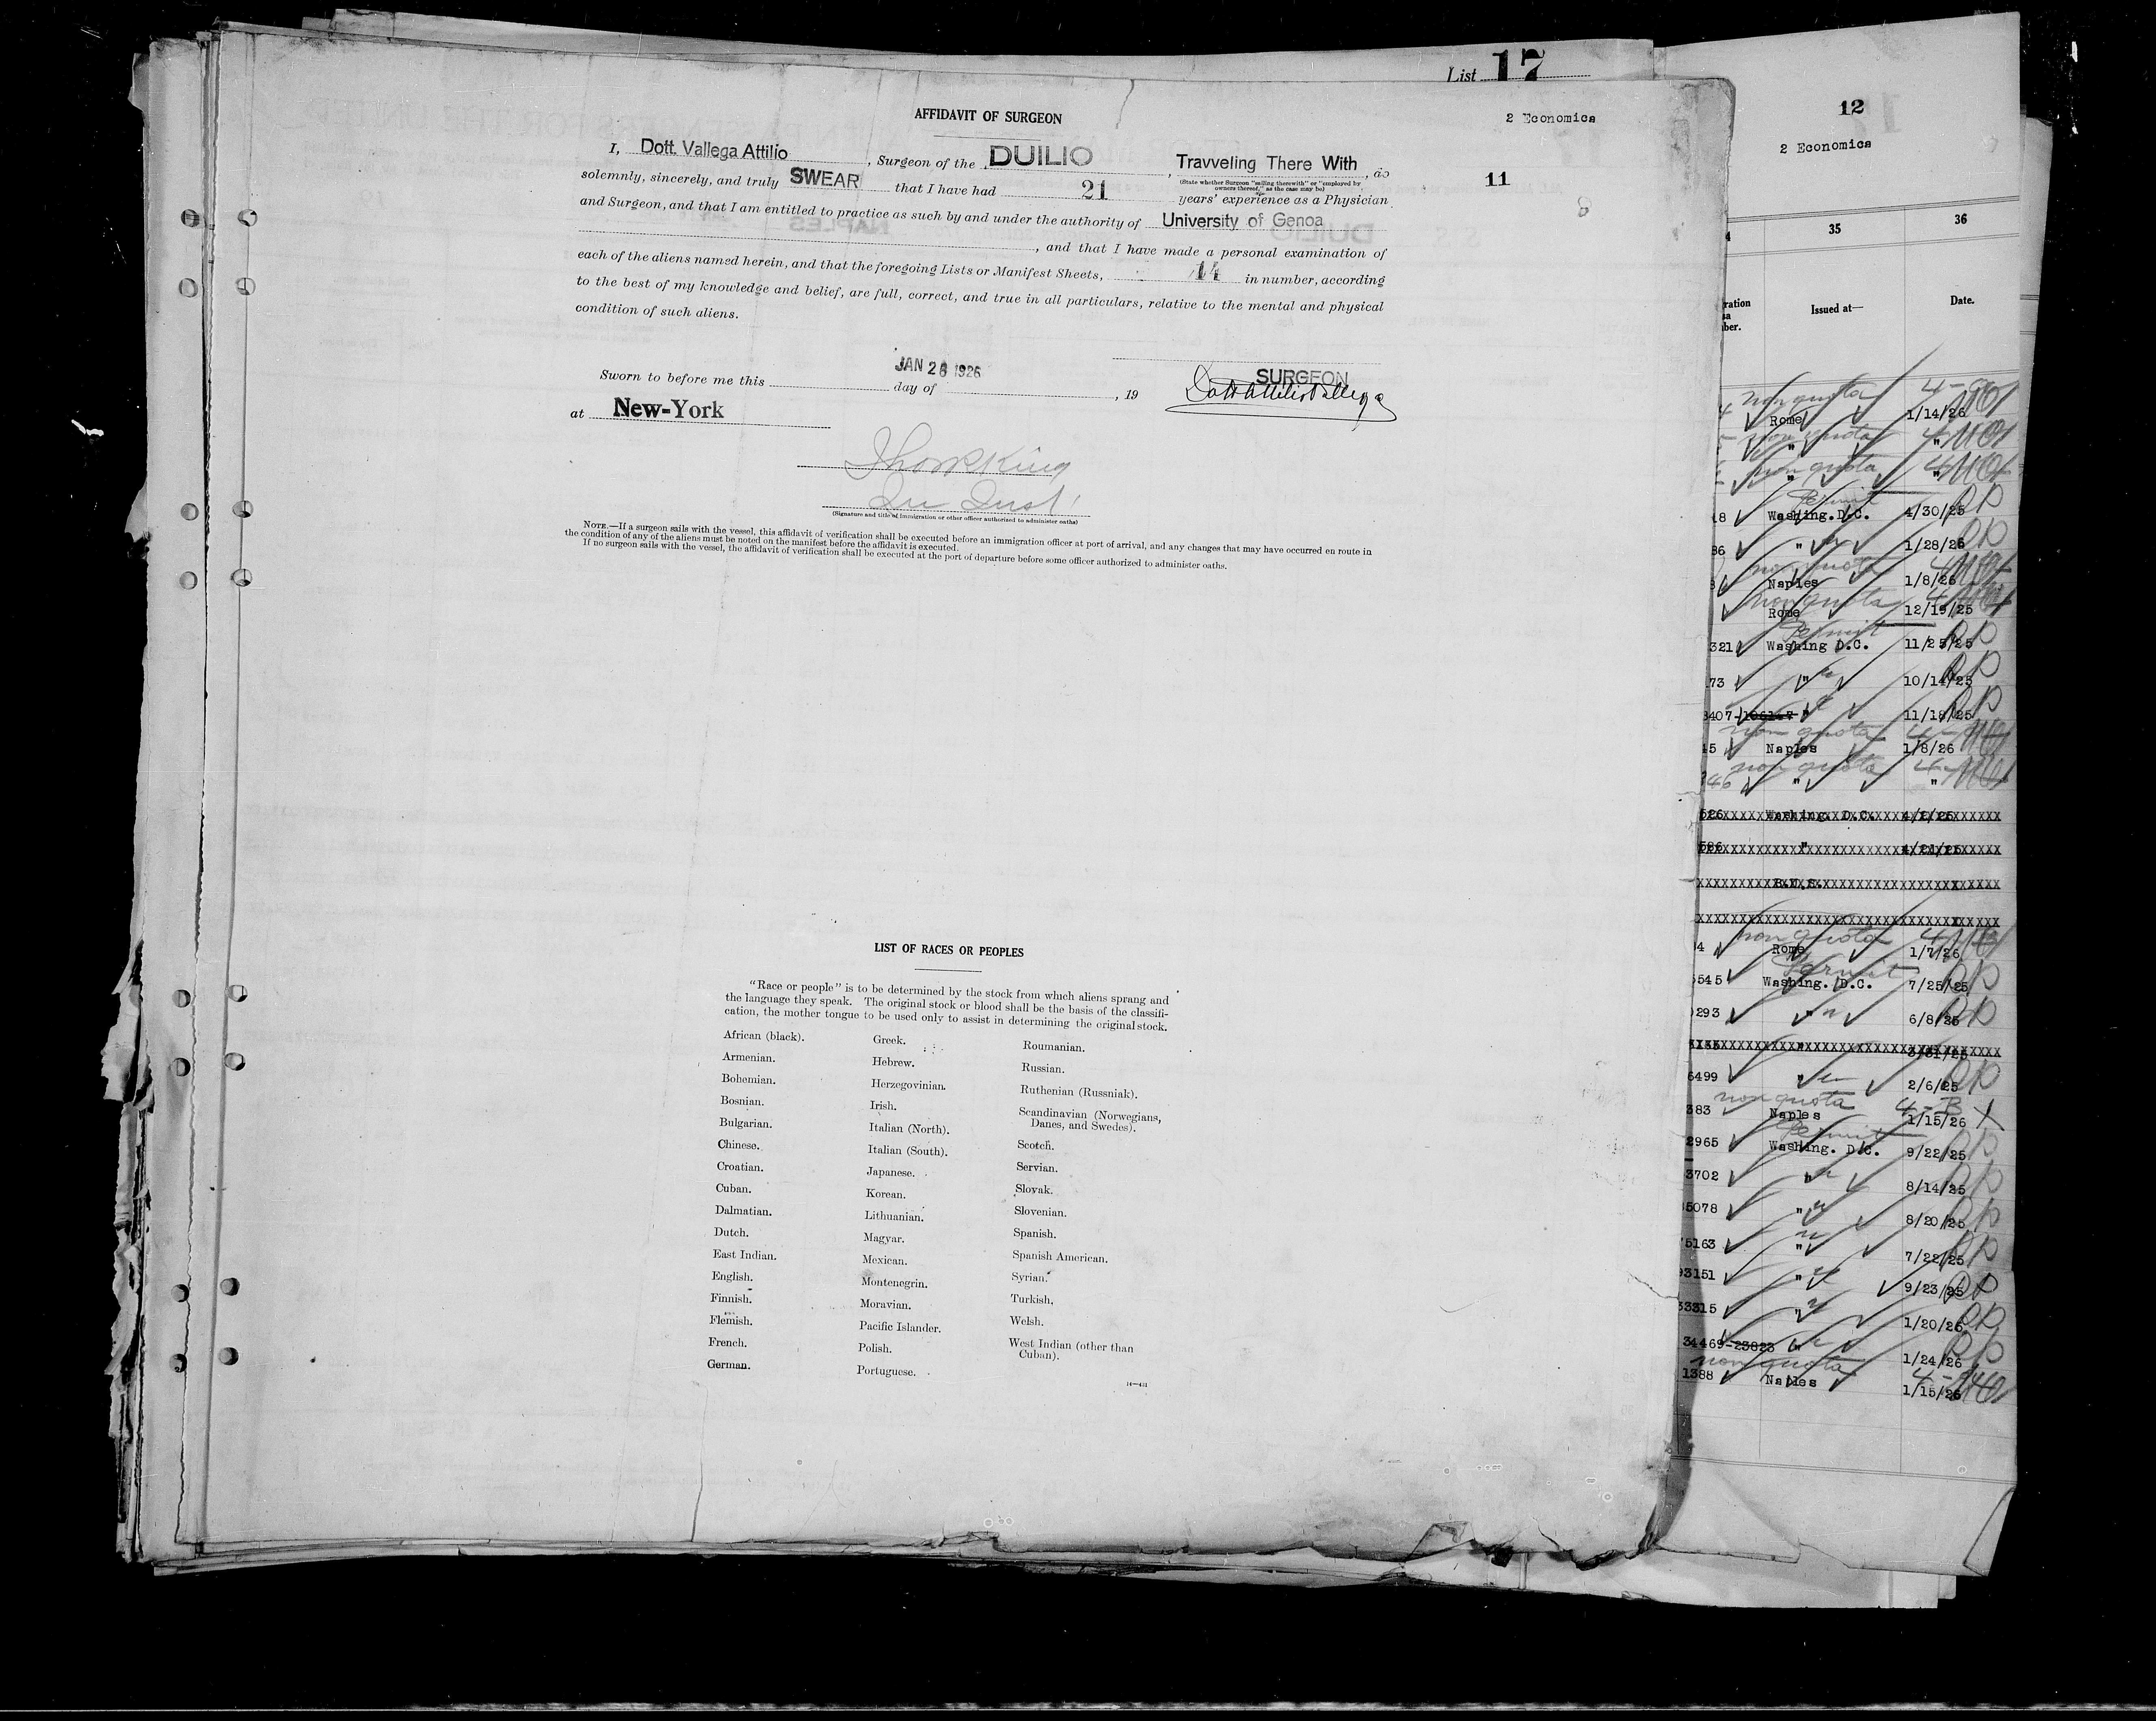 List 17
AFFIDAVIT OF SURGEON
2 Economics
I, Dott. Vallega Attilio, Surgeon of the DUILIO, Travveling There With, as
(State whether Surgeon "sailing therewith" or "employed by
owners thereof," as the case may be)
11
solemnly, sincerely, and truly SWEAR that I have had 21 years' experience as a Physician
and Surgeon, and that I am entitled to practice as such by and under the authority of University of Genoa
, and that I have made a personal examination of
each of the aliens named herein, and that the foregoing Lists or Manifest Sheets, 14 in number, according
to the best of my knowledge and belief, are full, correct, and true in all particulars, relative to the mental and physical
condition of such aliens.
SURGEON
Sworn to before me this JAN 26 1926 day of , 19
at New-York
(Signature and title of immigration or other officer authorized to administer oaths)
NOTE.—If a surgeon sails with the vessel, this affidavit of verification shall be executed before an immigration officer at port of arrival, and any changes that may have occurred en route in
the condition of any of the aliens must be noted on the manifest before the affidavit is executed.
If no surgeon sails with the vessel, the affidavit of verification shall be executed at the port of departure before some officer authorized to administer oaths.
LIST OF RACES OR PEOPLES
"Race or people" is to be determined by the stock from which aliens sprang and
the language they speak. The original stock or blood shall be the basis of the classifi-
cation, the mother tongue to be used only to assist in determining the original stock.
African (black).
Armenian.
Bohemian.
Bosnian.
Bulgarian.
Chinese.
Croatian.
Cuban.
Dalmatian.
Dutch.
East Indian.
English.
Finnish.
Flemish.
French.
German.
Greek.
Hebrew.
Herzegovinian.
Irish.
Italian (North).
Italian (South).
Japanese.
Korean.
Lithuanian.
Magyar.
Mexican.
Montenegrin.
Moravian.
Pacific Islander.
Polish.
Portuguese.
Roumanian.
Russian.
Ruthenian (Russniak).
Scandinavian (Norwegians,
Danes, and Swedes).
Scotch.
Servian.
Slovak.
Slovenian.
Spanish.
Spanish American.
Syrian.
Turkish.
Welsh.
West Indian (other than
Cuban).
12
2 Economics
35 36
Issued at— Date.
non quota
Rome 1/14/26
non quota
" "
non quota
" "
Permit
18 Washing.D.C. 4/30/25
86 " 1/28/26
non quota
Naples 1/8/26
non quota
Rome 12/19/25
Permit
321 Washing D.C. 11/25/25
73 " 10/14/25
3407 " 11/18/25
non quota
15 Naples 1/8/26
non quota
46 " "
526 Washing. D.C. 4/2/25
586 " 4/21/25
non quota
Rome 1/7/26
Permit
5545 Washing. D.C. 7/25/25
293 " 6/8/25
" 3/31/25
6499 " 2/6/25
non quota 4-B
383 Naples 1/15/26
Permit
2965 Washing. D.C. 9/22/25
3702 " 8/14/25
5078 " 8/20/25
5163 " 7/22/25
93151 " 9/23/25
33315 " 1/20/26
34469-23823 " 1/24/26
non quota
1388 Naples 1/15/26